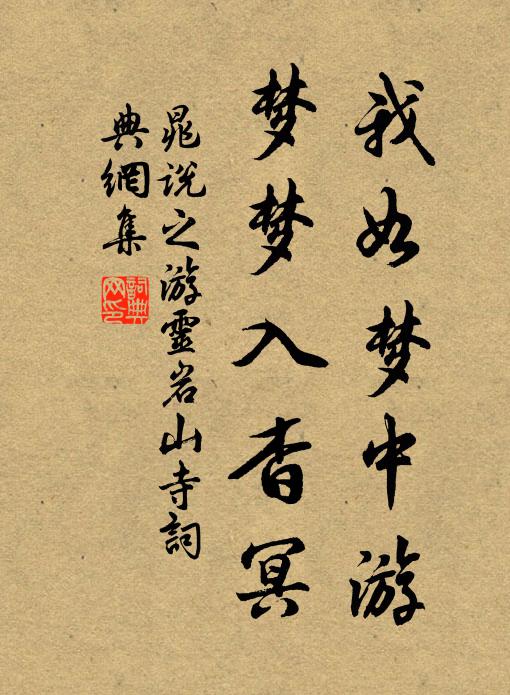 我如梦中游
梦梦入杳冥
晁说之游靈岩山寺詞
典網集
詞典
网印